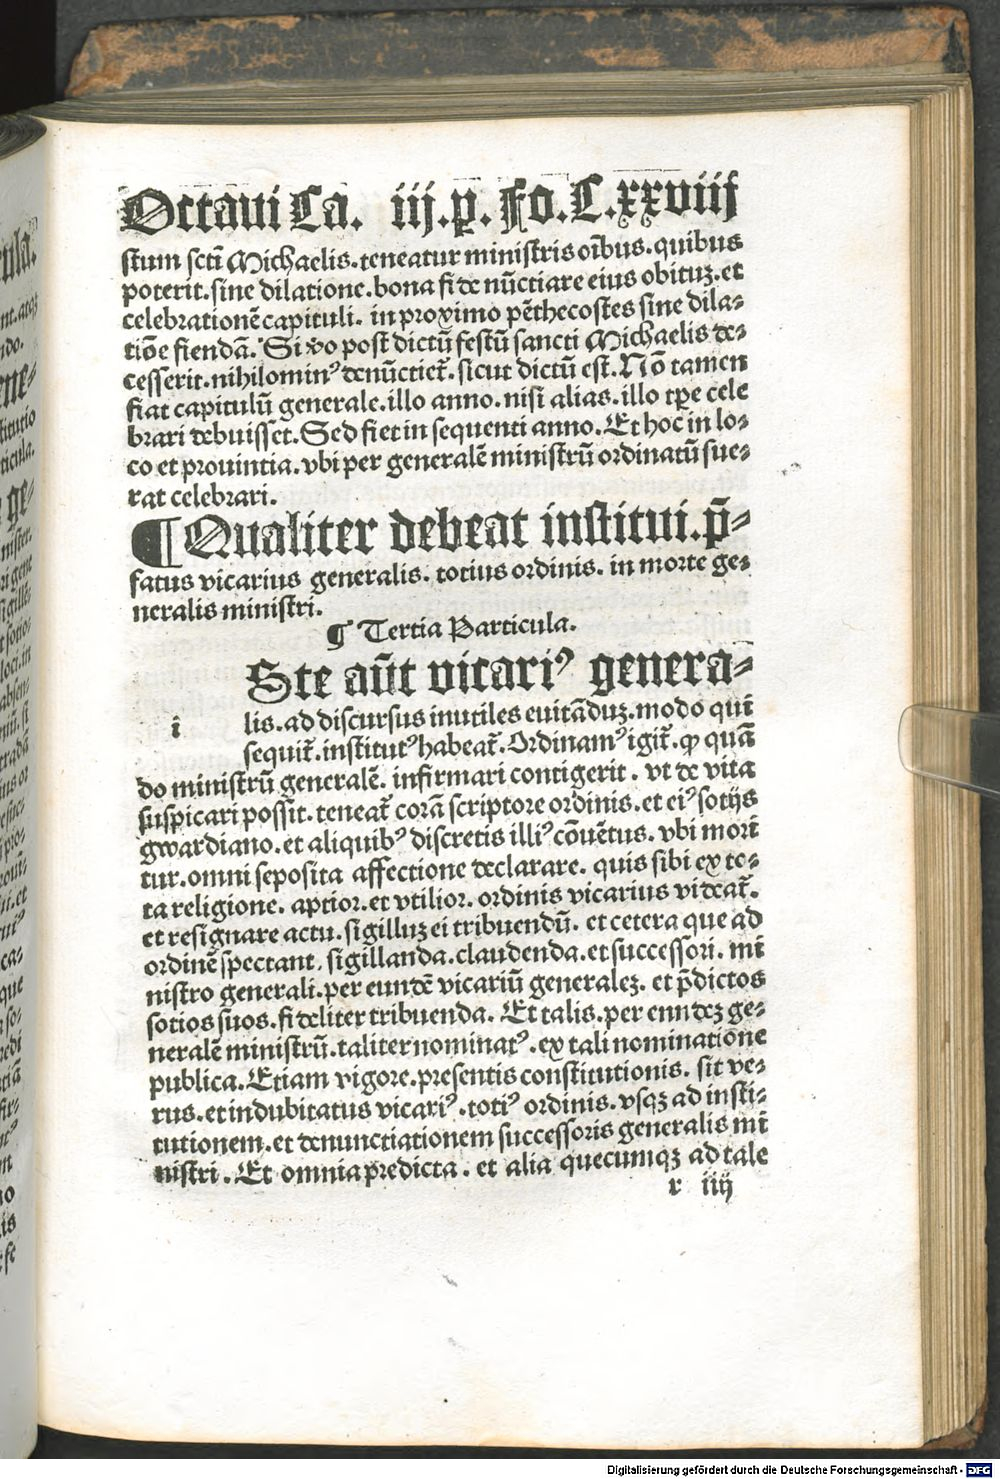 Octaui Ca. iij.p̄. Fo.C.xxviij
stum sctī Michaelis.teneatur ministris oībus.quibus
poterit.sine dilatione.bona fide nūctiare eius obituꝫ.et
celebrationē capituli. in proximo pēthecostes sine dila⸗
tiōe fiendā. Si v̄o post dictū festū sancti Michaelis de⸗
cesserit.nihilominꝰ denūctiet̄. sicut dictū est. Nō tamen
fiat capitulū generale.illo anno.nisi alias.illo tꝑe cele
brari debuisset. Sed fiet in sequenti anno. Et hoc in lo⸗
co et prouintia.vbi per generalē ministrū ordinatū fue⸗
rat celebrari.
¶ Qualiter debeat institui.p̄⸗
fatus vicarius generalis. totius ordinis. in morte ge⸗
neralis ministri.
¶ Tertia Particula.
Ste aūt vicariꝰ genera⸗
i lis.ad discursus inutiles euitāduꝫ.modo qui
sequit̄.institutꝰ habeat̄. Ordinamꝰ igit̄. ꝙ quā
do ministrū generalē. infirmari contigerit. vt de vita
suspicari possit.teneat̄ corā scriptore ordinis.et eiꝰ sotijs
gwardiano.et aliquibꝰ discretis illiꝰ cōuētus. vbi mori
tur.omni seposita affectione declarare. quis sibi ex to⸗
ta religione. aptior.et vtilior. ordinis vicarius videat̄.
et resignare actu.sigilluꝫ ei tribuendū. et cetera que ad
ordinē spectant. sigillanda.claudenda.et successori. mi
nistro generali.per eundē vicariū generaleꝫ. et p̄dictos
sotios suos.fideliter tribuenda. Et talis.per enndeꝫ ge⸗
neralē ministrū.taliter nominatꝰ.ex tali nominatione
publica.Etiam vigore.presentis constitutionis. sit ve⸗
rus.et indubitatus vicariꝰ.totiꝰ ordinis.vsqꝫ ad insti⸗
tutionem.et denunctiationem successoris generalis mi
nistri. Et omnia predicta. et alia quecumqꝫ ad tale
r iiij
Digitalisierung gefördert durch die Deutsche Forschungsgemeinschaft - DFG